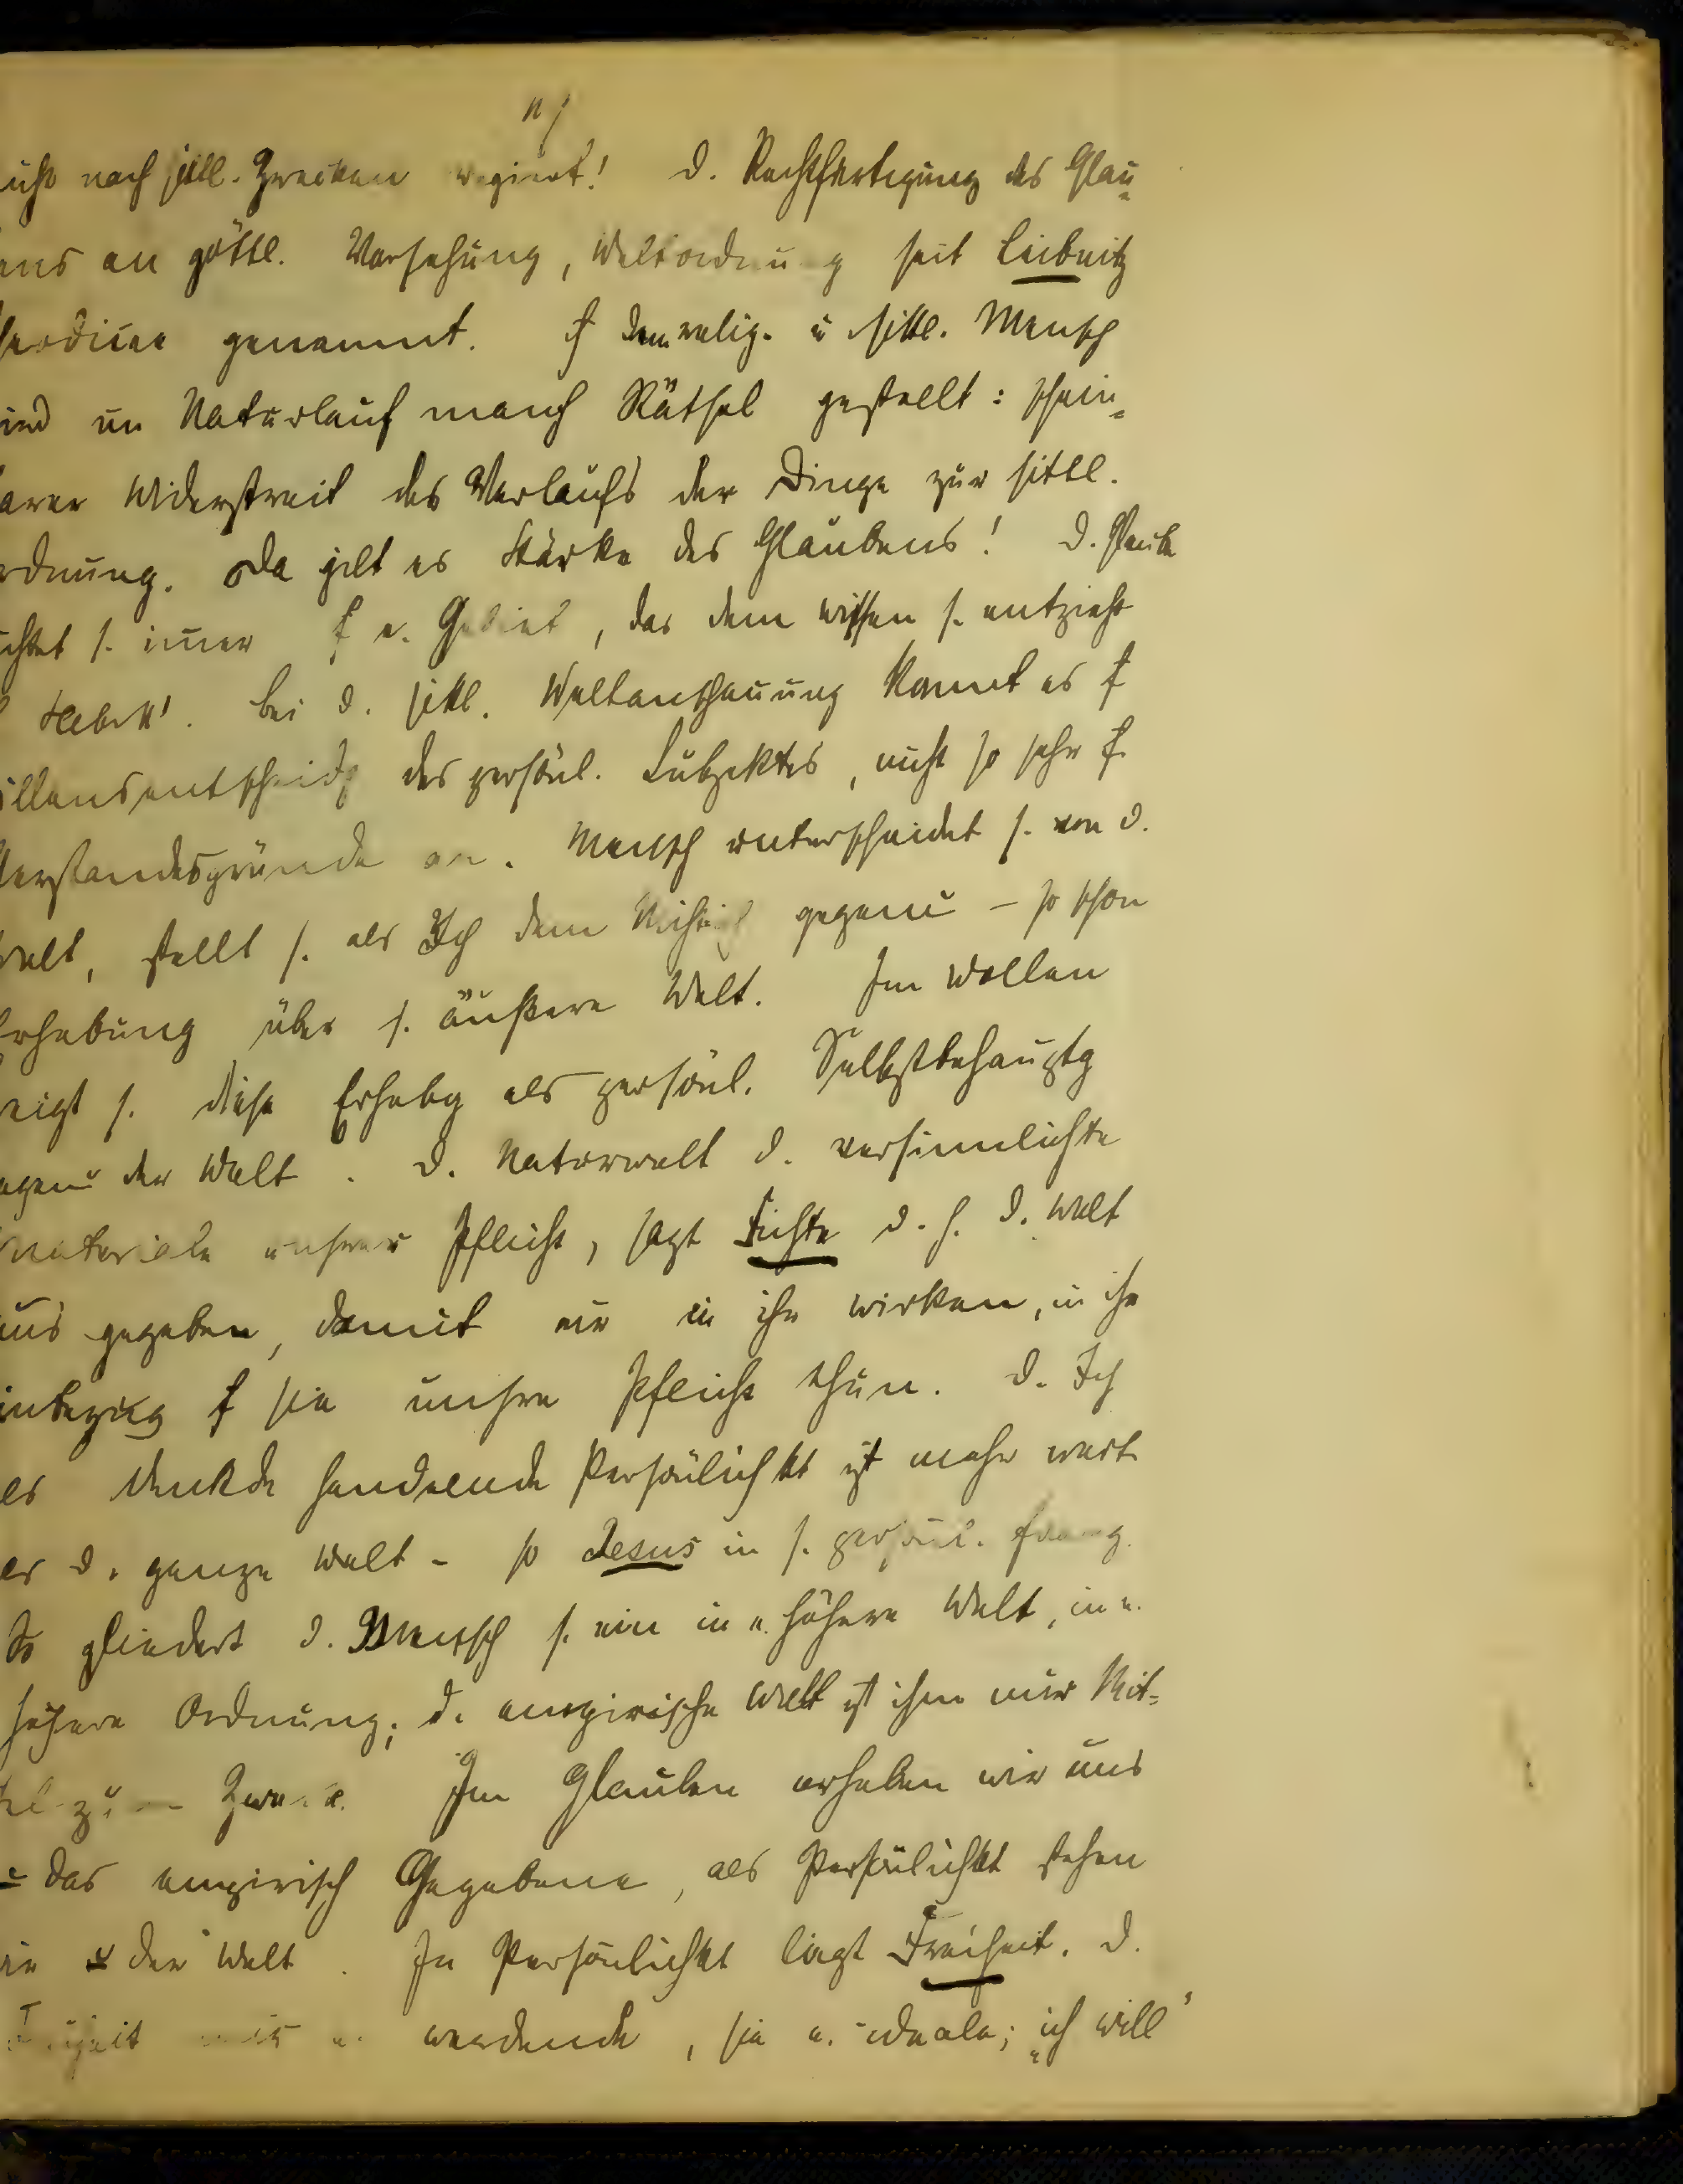 n/
icht nach sittl. Zwecken regiert! D. Rechtfertigung des Glau-
ens an göttl. Vorsehung, Weltordnung seit Leibnitz
eodicee genannt. dem relig. u sittl. Mensch
ind im Naturlauf manch Rätsel gestellt: schein-
arer Widerstreit des Verlaufs der Dinge zur sittl.
rdnung. Da gilt es Stärke des Glaubens! D. Glaube
chtet s. imer f e. Gebiet, das dem Wissen s. entzieht
bei d. sittl. Weltanschauung kommt es f
illensentscheidg des persönl. Subjektes, nicht so sehr f
Verstandesgründe an. Mensch unterscheidet s. von d.
Welt, stellt s. als Ich dem Nichtich gegenü – so schon
Erhebung über s. äußere Welt. Im Wollen
zeigt s. diese Erhebg als persönl. Selbstbehauptg
egenü der Welt. D. Naturwelt d. versinnlichte
Materiale unserer Pflicht, sagt Fichte d. h. d. Welt
uns gegeben, damit wir in ihr wirken, in ihr
inbezug f sie unsre Pflicht thun. D. Ich
als denkde handelnde Persönlichkt ist mehr wert
als d. ganze Welt – so Jesus in s. persönl.
So gliedert d. Mensch s. ein in e. höhere Welt, in e.
höhere Ordnung; d. empirische Welt ist ihm nur Mit-
tel zum Zweck. Im Glauben erheben wir uns
ü das empirisch Gegebene, als Persönlichkt stehen
wir ü der Welt. In Persönlichkt liegt Freiheit. D.
Freiheit werdende, sie e. ideale; „ich will"